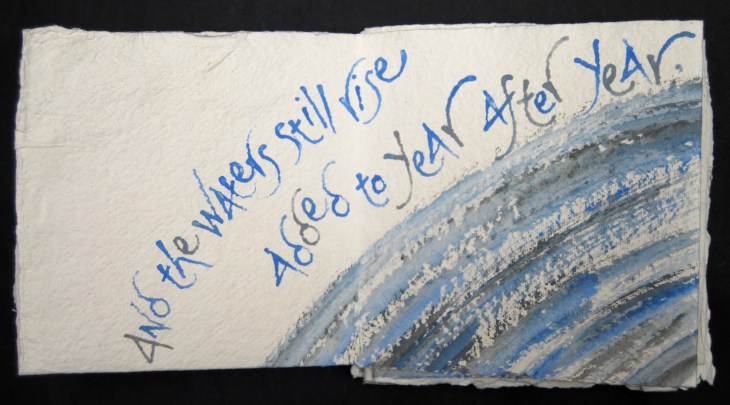 And the waters still rise
Added to year after year.